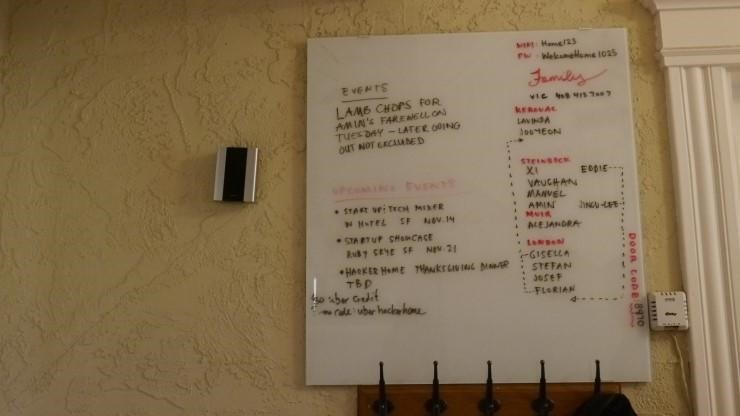 WIFI: Home123
PW: WelcomeHome1025
Family
VIC 408 413 7007
EVENTS
LAMB CHOPS FOR
AMIN'S FAREWELL ON
TUESDAY - LATER GOING
OUT NOT EXCLUDED
UPCOMING EVENTS
• START UP: TECH MIXER
W HOTEL SF NOV. 14
• STARTUP SHOWCASE
RUBY SKYE SF NOV. 21
• HACKER HOME THANKSGIVING DINNER
TBD
uber credit
code: uberhackerhome
KEROUAC
LAVINIA
JOOYEON
STEINBECK
XI EDDIE
VAUGHAN
MANUEL
AMIN JINGU-LEE
MUIR
ALEJANDRA
LONDON
GISELLA
STEFAN
JOSEF
FLORIAN
DOOR CODE: 8970